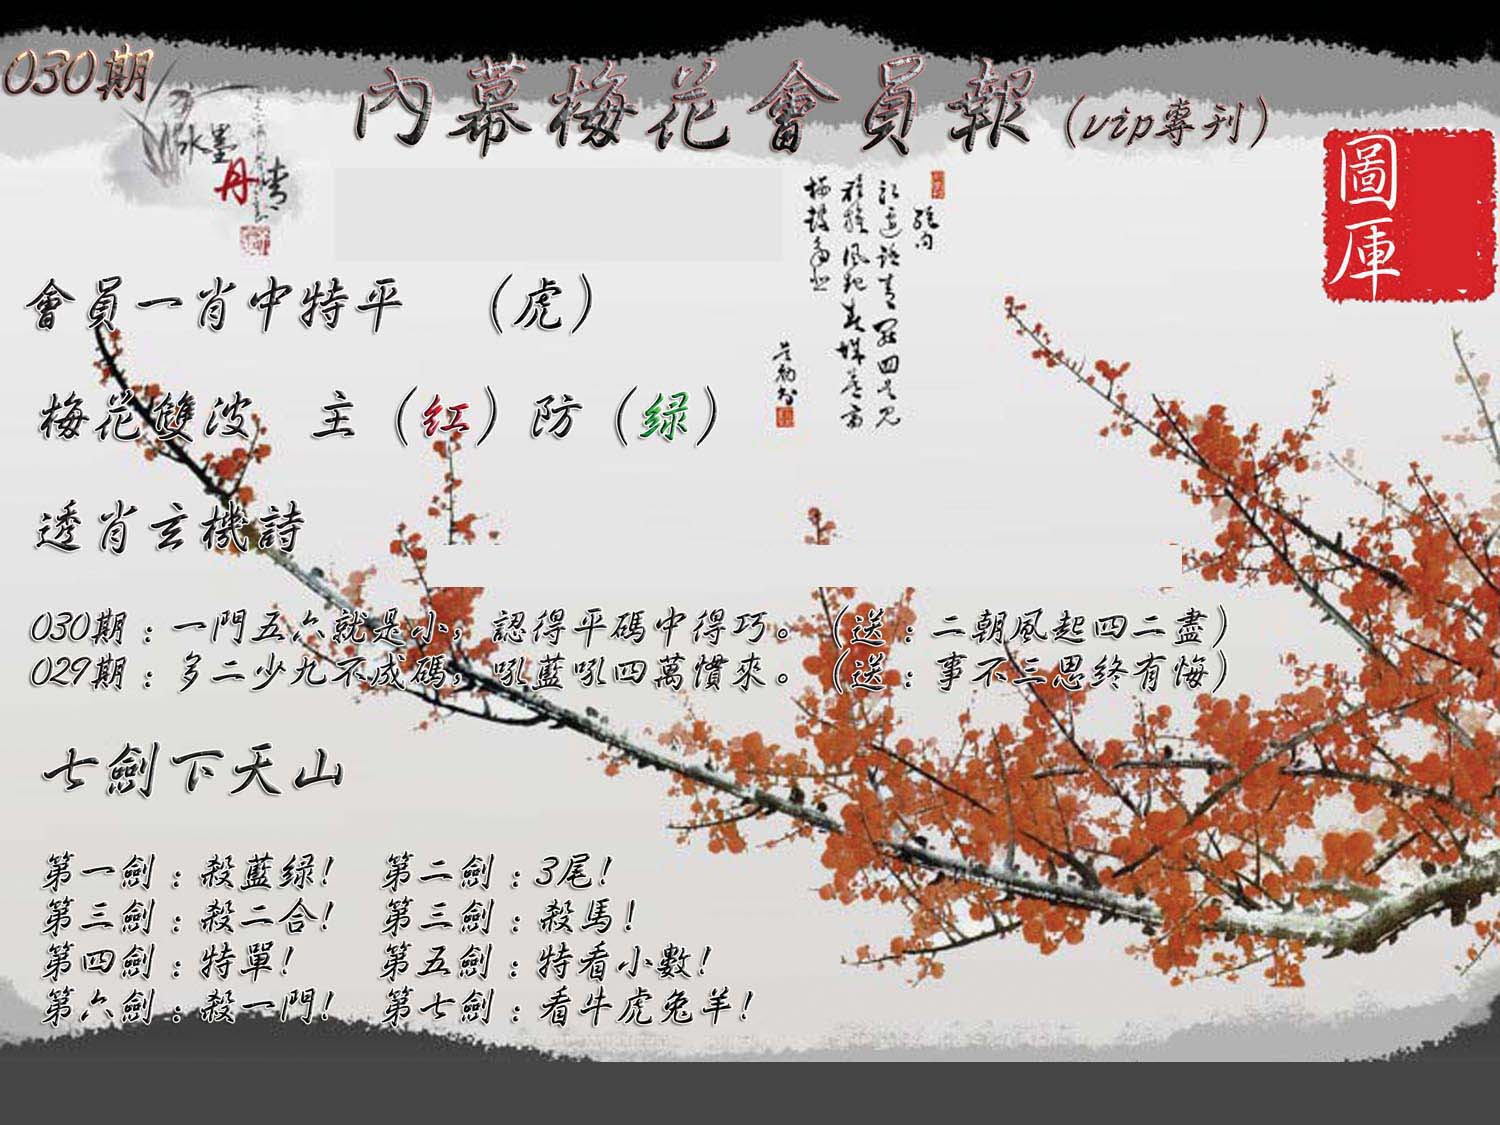 030期
內幕梅花會員報(vip專刊)
水墨
丹青
圖庫
會員一肖中特平 (虎)
梅花雙波 主(红)防(绿)
透肖玄機詩
030期:一門五六就是小,認得平碼中得巧。(送:二朝風起四二盡)
029期:多二少九不成碼,吼藍吼四萬慣來。(送:事不三思終有悔)
七劍下天山
第一劍:殺藍绿! 第二劍:3尾!
第三劍:殺二合! 第三劍:殺馬!
第四劍:特單! 第五劍:特看小數!
第六劍:殺一門! 第七劍:看牛虎兔羊!